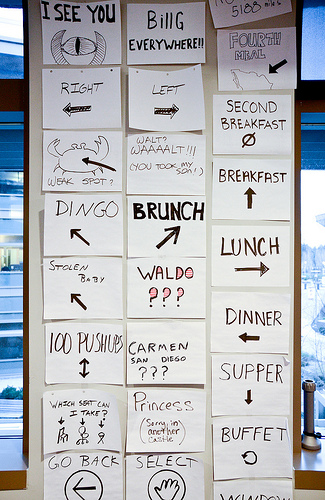 I SEE YOU
RIGHT
WEAK SPOT?
DINGO
STOLEN
BABY
100 PUSHUPS
WHICH SEAT CAN
I TAKE?
GO BACK
BillG
EVERYWHERE!!
LEFT
WALT?
WAAAALT!!!
(YOU TOOK my
son!)
BRUNCH
WALDO
???
CARMEN
SAN DIEGO
???
Princess
(Sorry, in
another
castle)
SELECT
5188 miles
FOURTH
MEAL
SECOND
BREAKFAST
BREAKFAST
LUNCH
DINNER
SUPPER
BUFFET
WINDOW